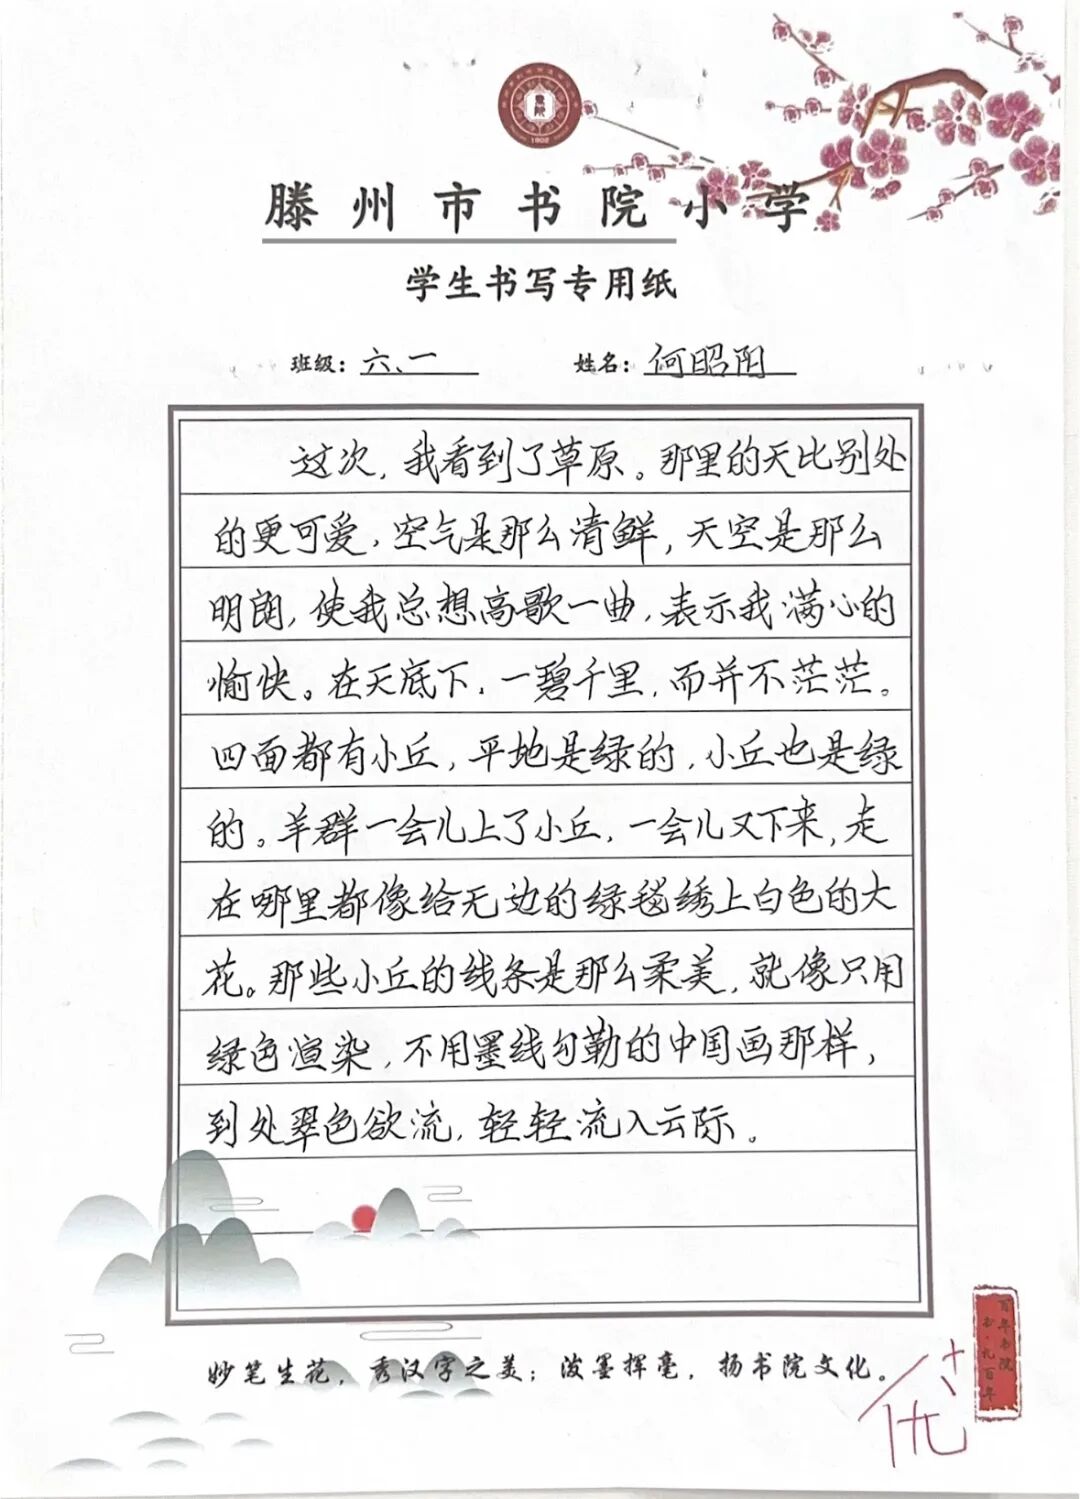 書院
1902
滕州市书院小学
学生书写专用纸
班级：六、一 姓名：何昭阳
这次，我看到了草原。那里的天比别处
的更可爱，空气是那么清鲜，天空是那么
明朗，使我总想高歌一曲，表示我满心的
愉快。在天底下，一碧千里，而并不茫茫。
四面都有小丘，平地是绿的，小丘也是绿
的。羊群一会儿上了小丘，一会儿又下来，走
在哪里都像给无边的绿毯绣上白色的大
花。那些小丘的线条是那么柔美，就像只用
绿色渲染，不用墨线勾勒的中国画那样，
到处翠色欲流，轻轻流入云际。
百年书院
书·礼百年
妙笔生花，秀汉字之美；泼墨挥毫，扬书院文化。
优++